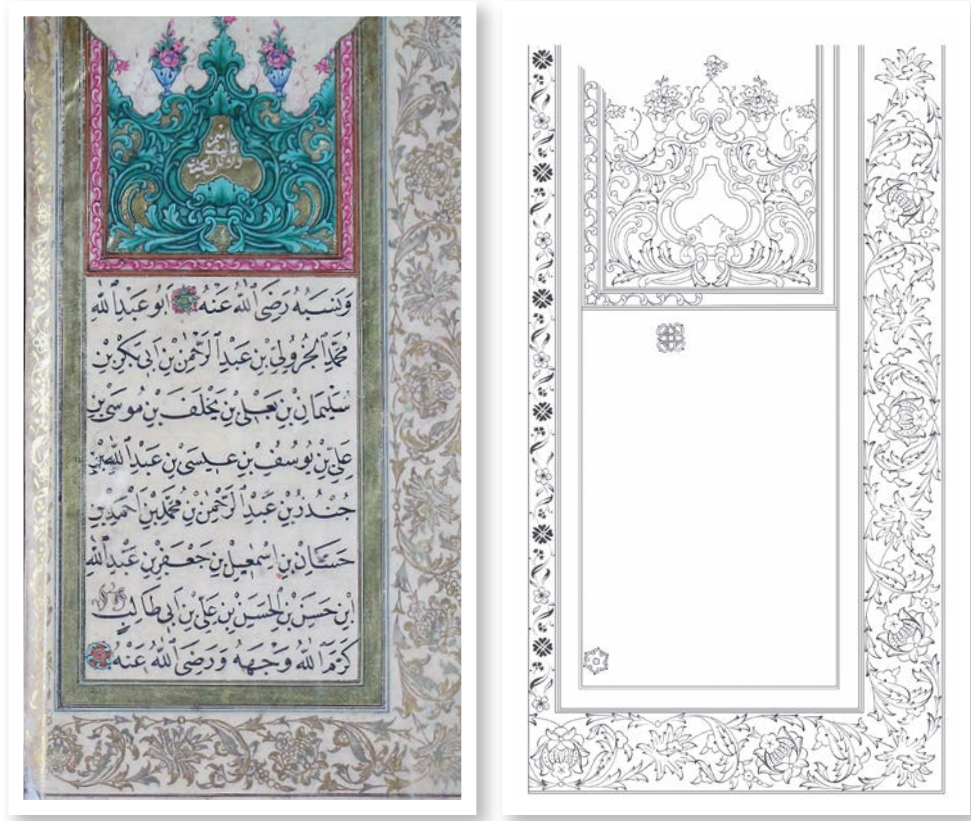 وَنَسَبُهُ رَضِيَ اللّٰهُ عَنْهُ اَبُو عَبْدِ اللّٰهِ
مُحَمَّدِ الْجُزُولِيِّ بْنِ عَبْدِ الرَّحْمٰنِ بْنِ اَبِي بَكْرِ بْنِ
سُلَيْمَانَ بْنِ يَعْلَى بْنِ يَخْلَفَ بْنِ مُوسَى بْنِ
عَلِيِّ بْنِ يُوسُفَ بْنِ عِيسَى بْنِ عَبْدِ اللّٰهِ بْنِ
جُنْدُزِ بْنِ عَبْدِ الرَّحْمٰنِ بْنِ مُحَمَّدِ بْنِ اَحْمَدَ بْنِ
حَسَّانَ بْنِ اِسْمٰعِيلَ بْنِ جَعْفَرِ بْنِ عَبْدِ اللّٰهِ
ابْنِ حَسَنِ بْنِ الْحَسَنِ بْنِ عَلِيِّ بْنِ اَبِي طَالِبٍ
كَرَّمَ اللّٰهُ وَجْهَهُ وَرَضِيَ اللّٰهُ عَنْهُ